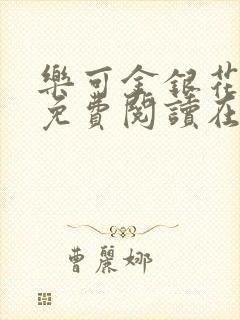 樂可金銀花
免費閱讀在
曹麗娜